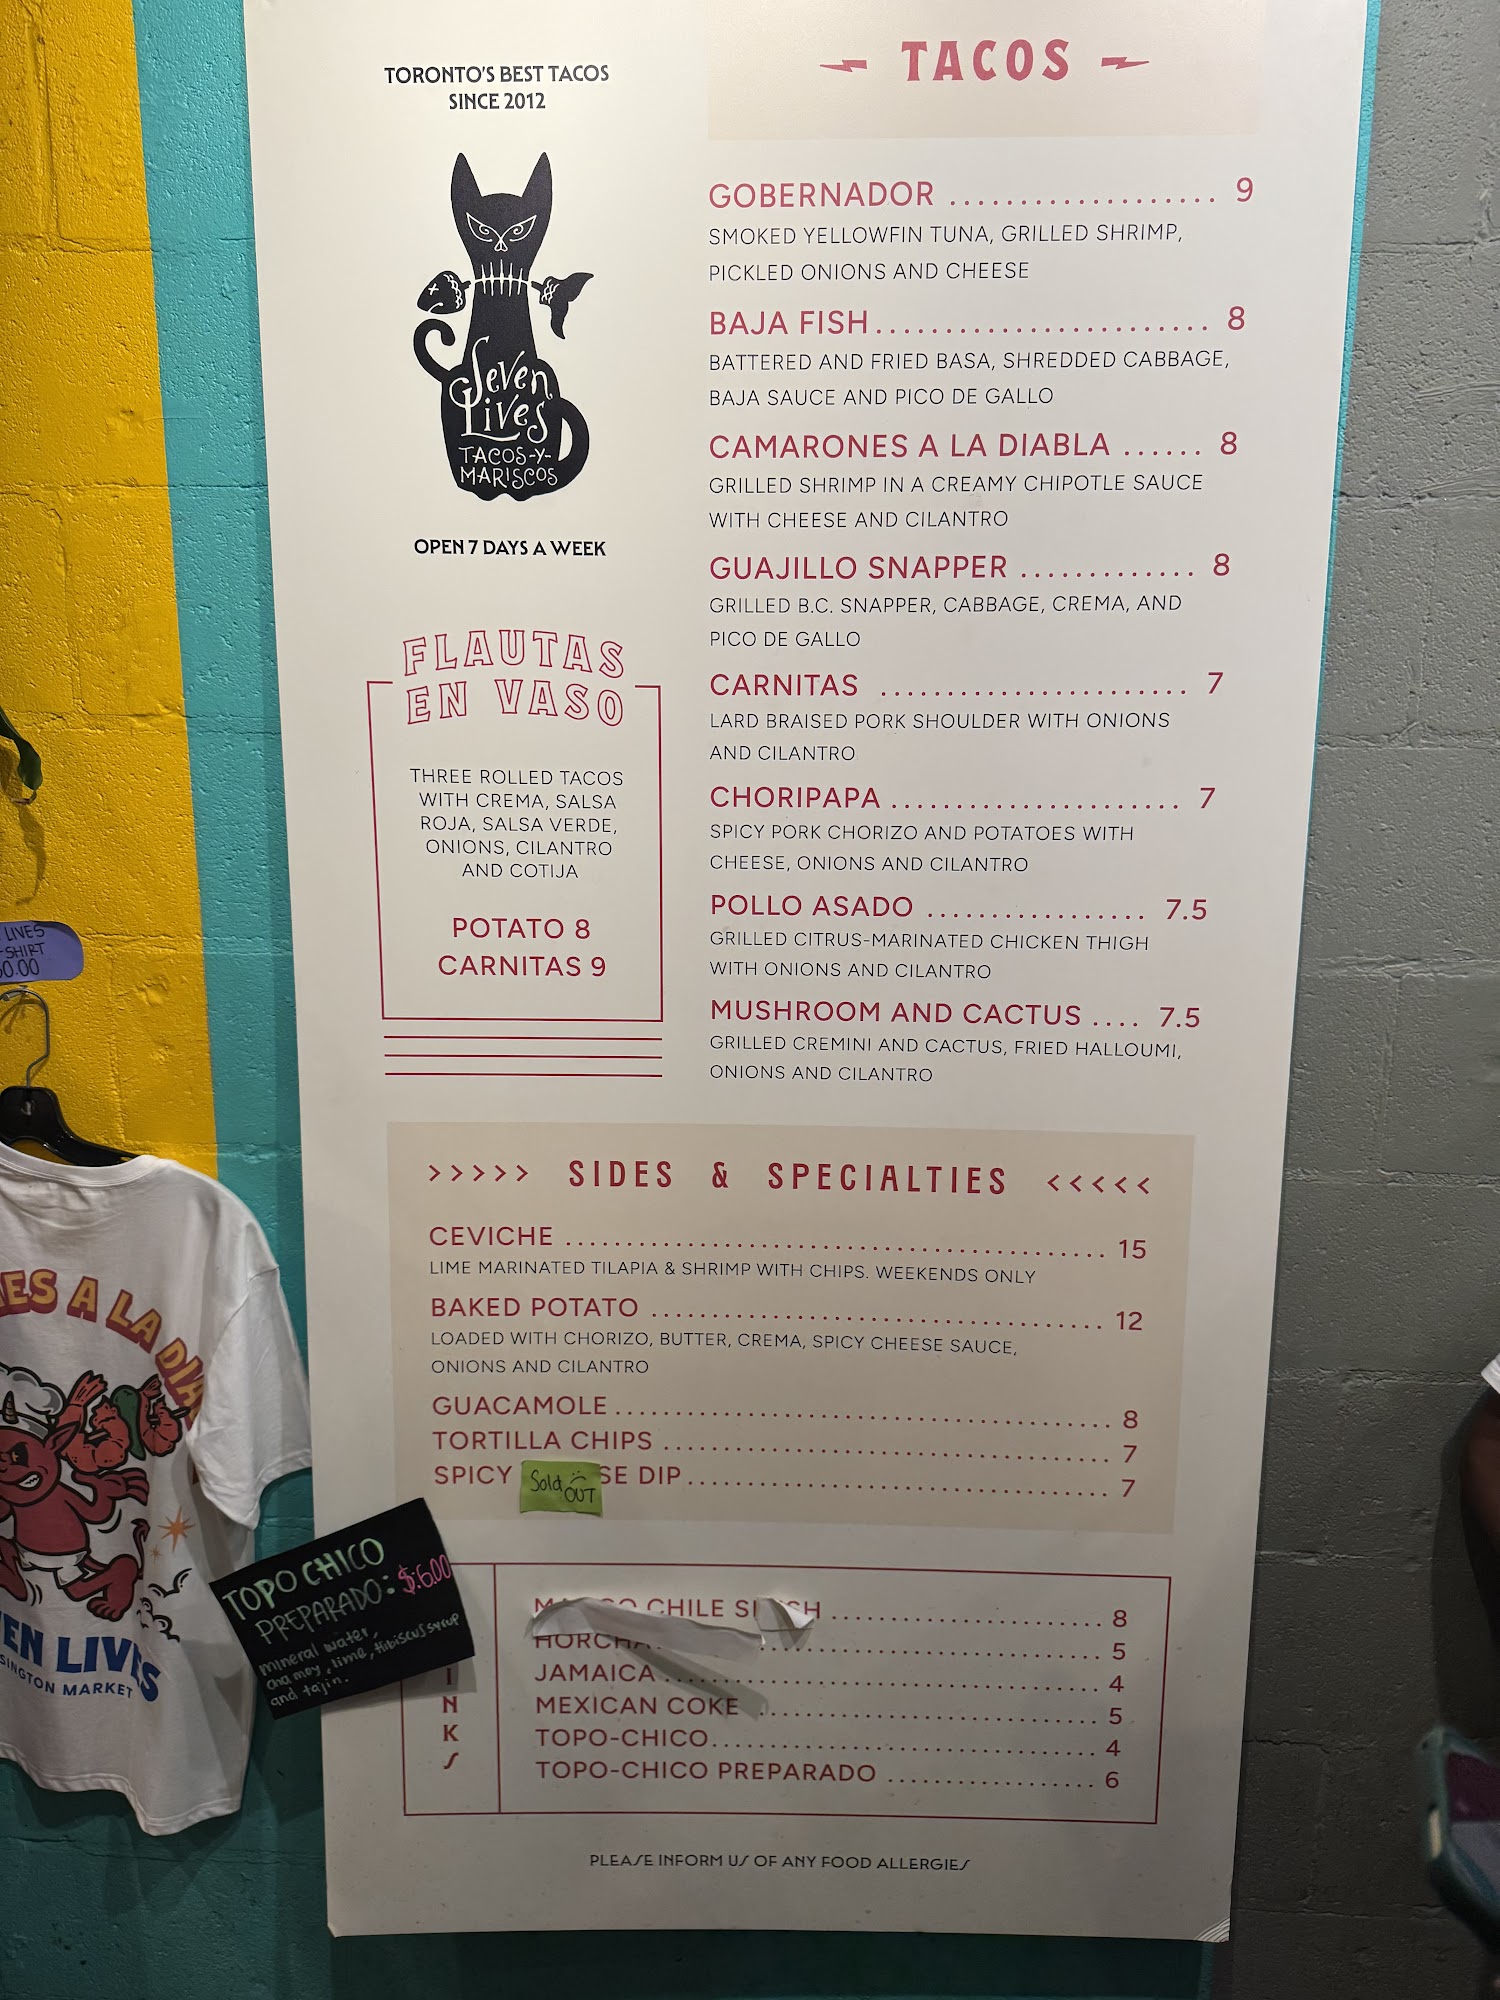 TORONTO'S BEST TACOS
SINCE 2012
Seven
Lives
TACOS-Y-
MARISCOS
OPEN 7 DAYS A WEEK
FLAUTAS
EN VASO
THREE ROLLED TACOS
WITH CREMA, SALSA
ROJA, SALSA VERDE,
ONIONS, CILANTRO
AND COTIJA
POTATO 8
CARNITAS 9
TACOS
GOBERNADOR ................... 9
SMOKED YELLOWFIN TUNA, GRILLED SHRIMP,
PICKLED ONIONS AND CHEESE
BAJA FISH........................ 8
BATTERED AND FRIED BASA, SHREDDED CABBAGE,
BAJA SAUCE AND PICO DE GALLO
CAMARONES A LA DIABLA ...... 8
GRILLED SHRIMP IN A CREAMY CHIPOTLE SAUCE
WITH CHEESE AND CILANTRO
GUAJILLO SNAPPER ............. 8
GRILLED B.C. SNAPPER, CABBAGE, CREMA, AND
PICO DE GALLO
CARNITAS ...................... 7
LARD BRAISED PORK SHOULDER WITH ONIONS
AND CILANTRO
CHORIPAPA ..................... 7
SPICY PORK CHORIZO AND POTATOES WITH
CHEESE, ONIONS AND CILANTRO
POLLO ASADO ................ 7.5
GRILLED CITRUS-MARINATED CHICKEN THIGH
WITH ONIONS AND CILANTRO
MUSHROOM AND CACTUS .... 7.5
GRILLED CREMINI AND CACTUS, FRIED HALLOUMI,
ONIONS AND CILANTRO
>>>>> SIDES & SPECIALTIES <<<<<
CEVICHE ....................................... 15
LIME MARINATED TILAPIA & SHRIMP WITH CHIPS. WEEKENDS ONLY
BAKED POTATO ................................. 12
LOADED WITH CHORIZO, BUTTER, CREMA, SPICY CHEESE SAUCE,
ONIONS AND CILANTRO
GUACAMOLE.................................... 8
TORTILLA CHIPS ................................ 7
SPICY SE DIP.............................. 7
Sold
OUT
CHILE ................... 8
......................... 5
JAMAICA ................................ 4
MEXICAN COKE ......................... 5
TOPO-CHICO............................ 4
TOPO-CHICO PREPARADO ............... 6
INKS
PLEASE INFORM US OF ANY FOOD ALLERGIES
TOPO CHICO
PREPARADO: $:6.00
mineral water,
chamoy, lime, Hibiscus syrup
and tajin.
LIVES
SHIRT
0.00
ES A LA DIA
EN LIVES
SINGTON MARKET